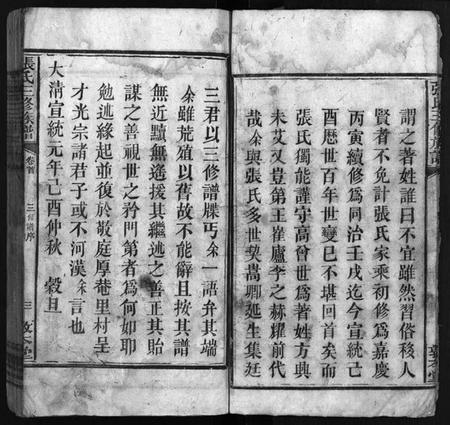 謂之著姓誰曰不宜雖然習俗移人
賢者不免計張氏家乘初修爲嘉慶
丙寅續修爲同治壬戌迄今宣統己
酉歷世百年世變已不堪回首矣而
張氏獨能謹守高曾世爲著姓方興
未艾又豈第王崔盧李之赫耀前代
哉余與張氏多世契嵩卿延生集廷
三君以三修譜牒丐余一語弁其端
余雖荒殖以舊故不能辭且按其譜
無近黷無遙援其繼述之善正其貽
謀之善視世之矜門第者爲何如耶
勉述緣起並復於敬庭厚菴里村呈
才光宗諸君子或不河漢余言也
大清宣統元年己酉仲秋 穀旦
張氏三修族譜 卷首 三修譜序 三